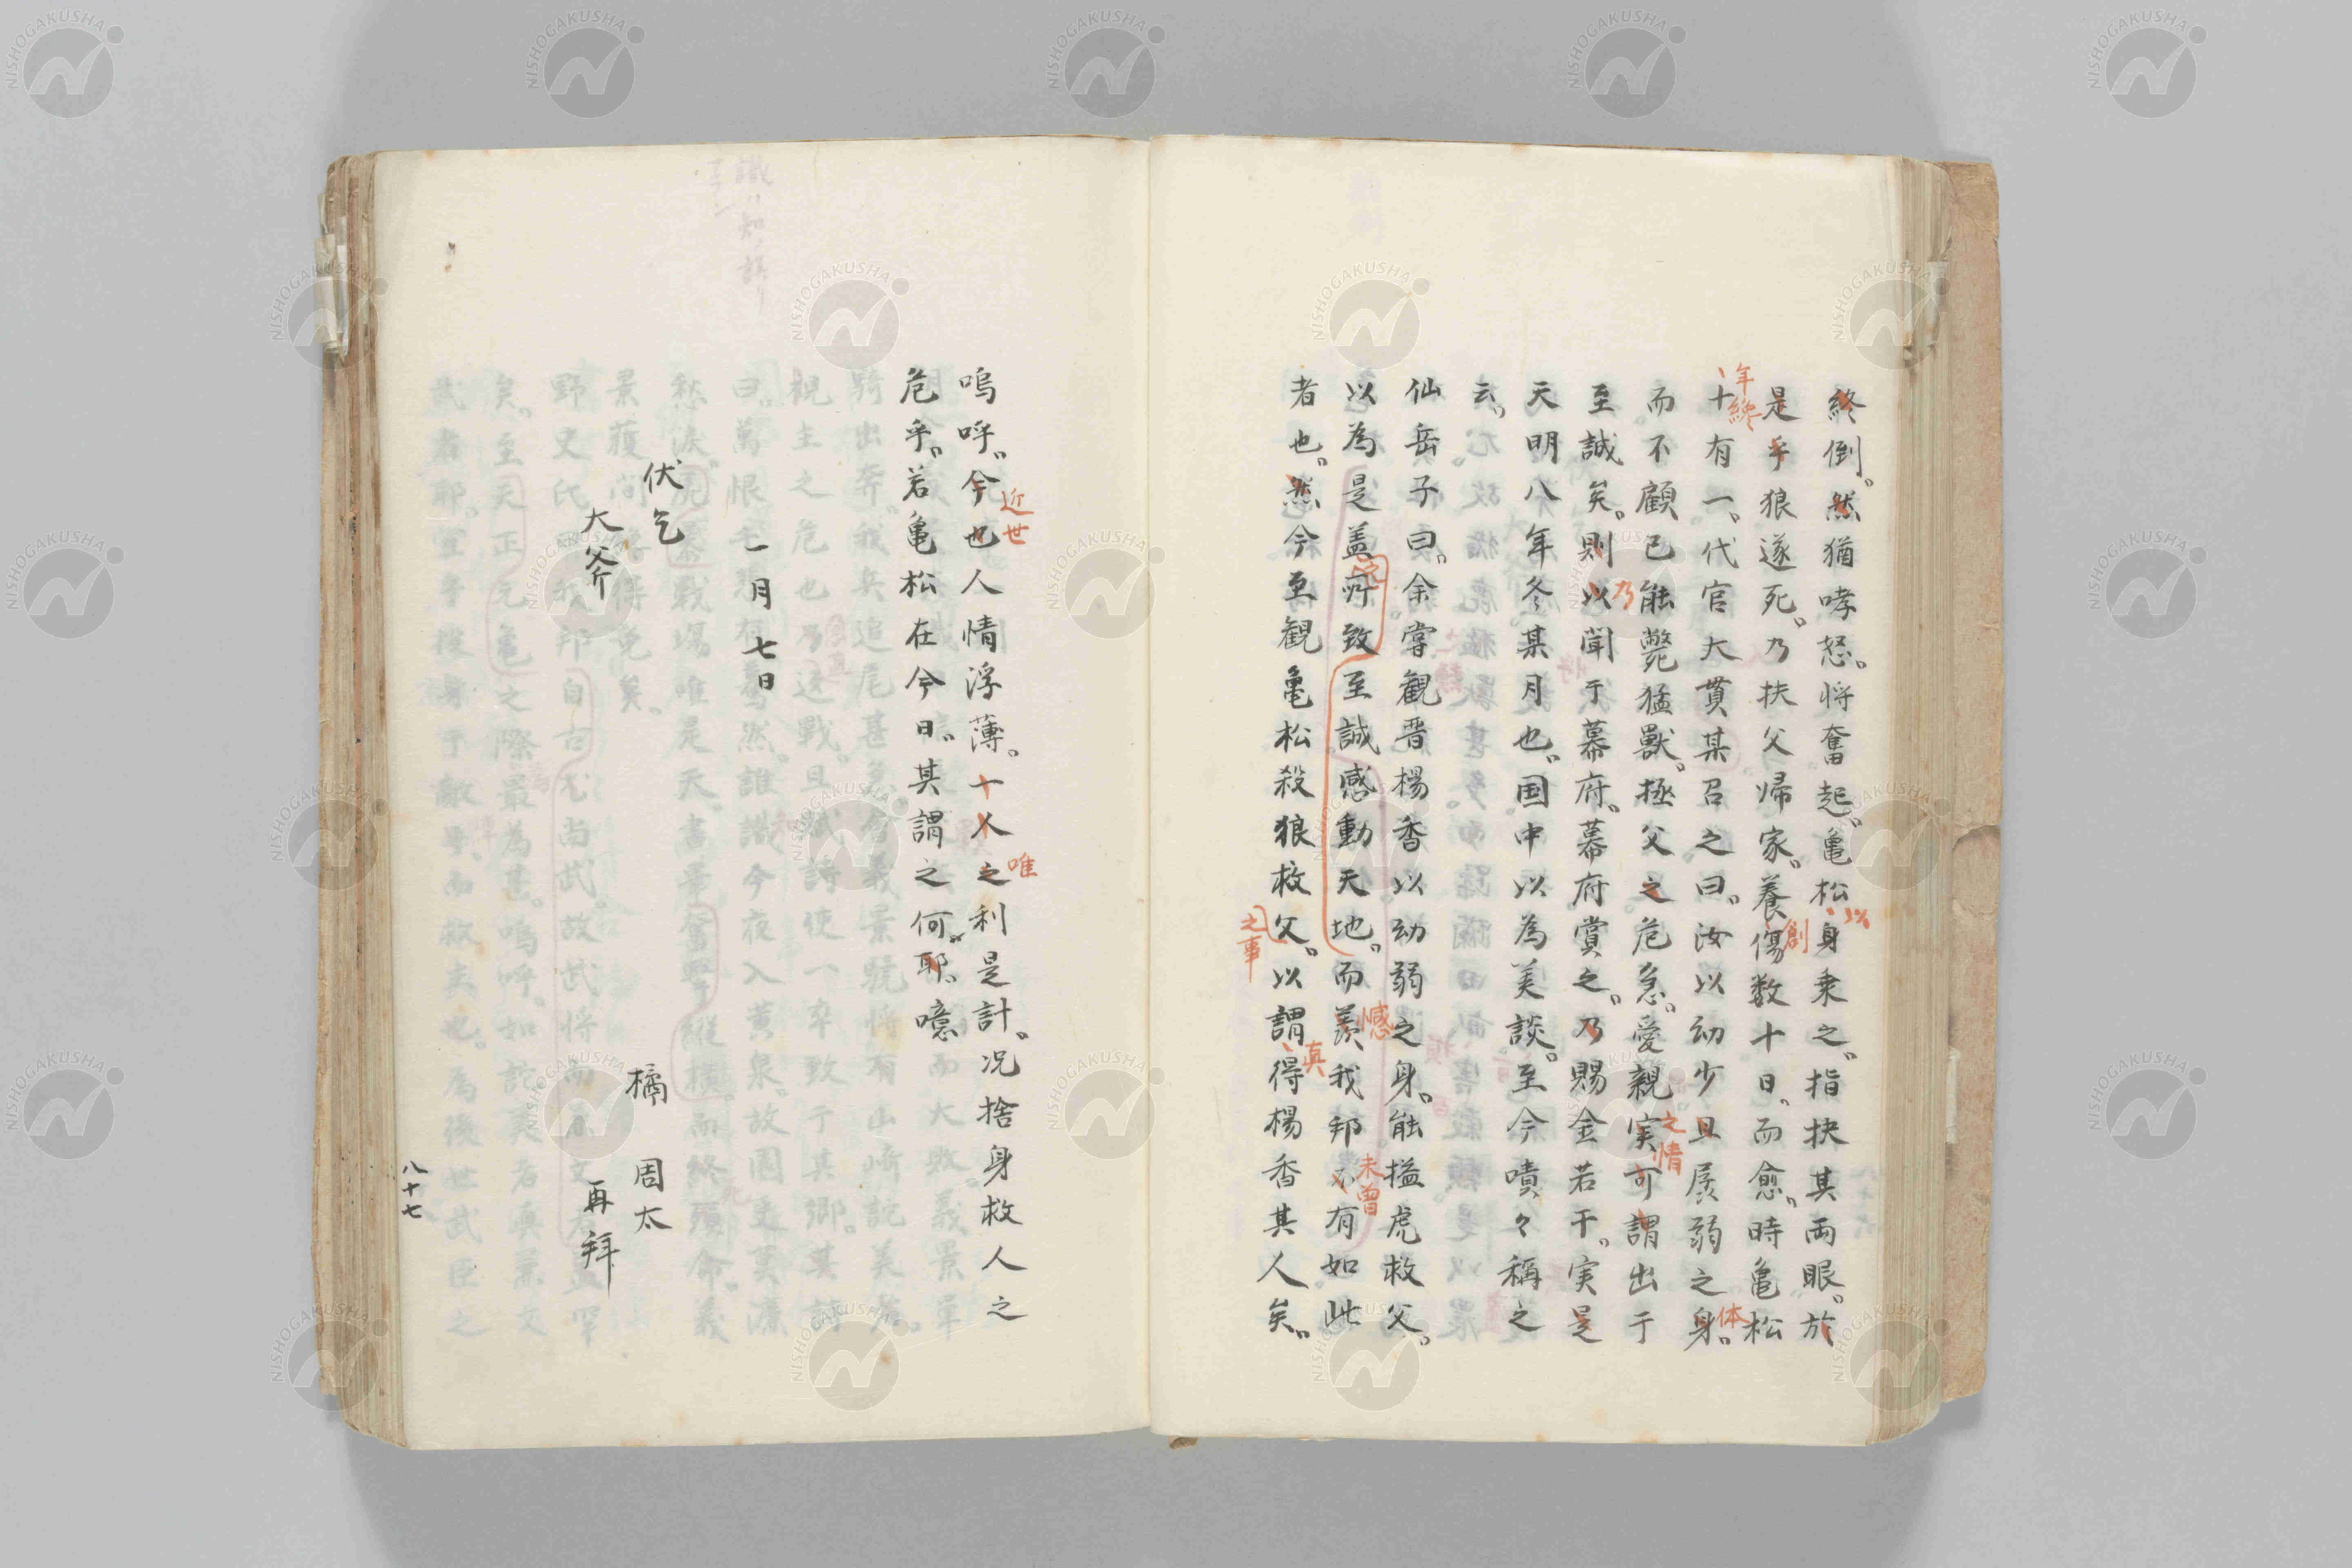 終倒。然猶哮怒。将奮起。亀松身乗之。指抉其両眼。於
以
是乎狼遂死。乃扶父帰家。養傷数十日。而愈。時亀松
創
年纔
十有一。代官大貫某召之曰。汝以幼少且孱弱之身。
体
而不顧己能斃猛獣。極父之危急。愛親実可謂出于
之情
至誠矣。則以聞于幕府。幕府賞之。乃賜金若干。実是
乃
天明八年冬某月也。国中以為美談。至今嘖々稱之
云。
仙岳子曰。余嘗観晋楊香以幼弱之身。能搤虎救父。
以為是盖所致至誠感動天地。而羨我邦不有如此
憾
未曽
者也。然今至観亀松殺狼救父。以謂得楊香其人矣。
之事
真
嗚呼。今也人情浮薄。十人之利是計。况捨身救人之
近世
唯
危乎。若亀松在今日。其謂之何。耶。噫
一月七日
伏乞
橘周太
大斧
再拜
八十七
NISHOGAKUSHA